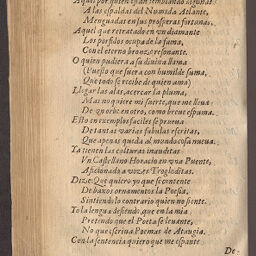 Aquel por quien estan temblando algunas
A las espaldas del Numida Atlante,
Menguadas en sus prosperas fortunas.
Aquel que retratado en vn diamante
Los porfidos ocupa de la fama,
Con el eterno bronze resonante.
O quien pudiera a su diuina llama
(Puesto que fuera con humilde suma,
Que todo se recibe de quien ama)
Llegar las alas, acercar la pluma,
Mas no quiere mi suerte, que me lleua
De vn orbe en otro, como breue espuma.
Esto en exemplos faciles se prueua
De tantas varias fabulas escritas,
Que apenas queda al mundo cosa nueua.
Ya tienen las culturas inauditas
Vn Castellano Horacio en vna Puente,
Aficionado a vozes Trogloditas.
Dize: Que quiero yo que se contente
De baxos ornamentos la Poesia,
Sintiendo lo contrario quien no siente.
To la lengua defiendo, que en la mia
Pretendo que el Poeta se leuante,
No que escriua Poemas de Ataugia.
Con la sentencia quiero que me espante
De-